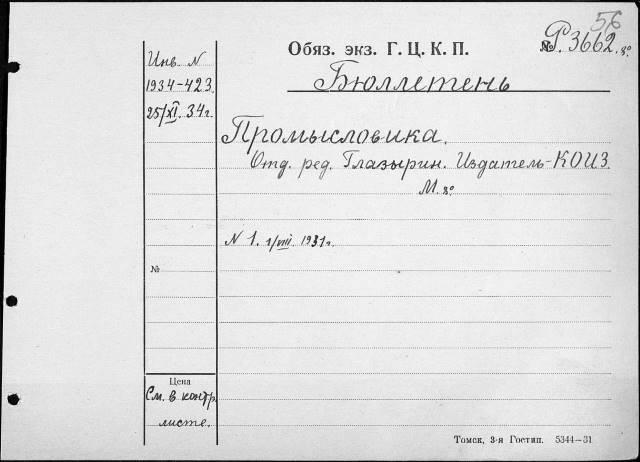 56
Обяз. экз. Г. Ц. К. П.
№ Р. 3662. 8°.
Бюллетень
Инв. N
1934-423
25/XI. 34г.
Промысловика.
Отд. ред. Глазырин. Издатель-КОИЗ.
М. 8°.
N 1. 1/VIII. 1931г.
№
Цена
См. в контр.
листе.
Томск, 3-я Гостип. 5344—31